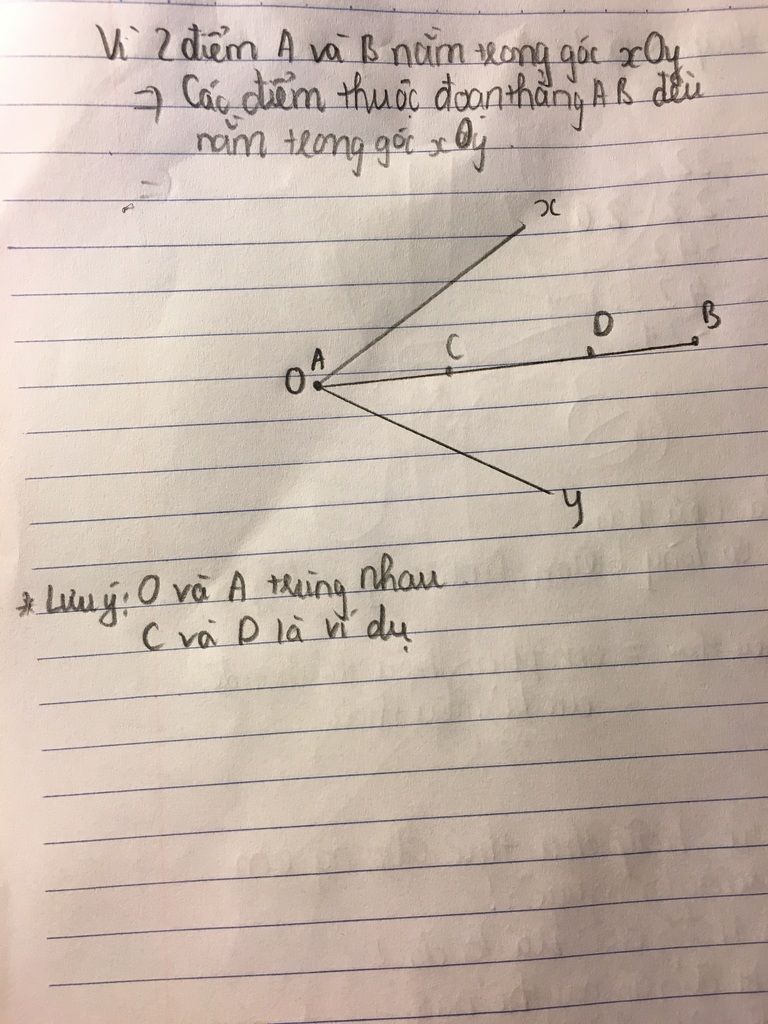 Vì 2 điểm A và B nằm trong góc xOy
⇒ Các điểm thuộc đoạn thẳng AB đều
nằm trong góc xOy.
x
O A C D B
y
* Lưu ý: O và A trùng nhau
C và D là ví dụ